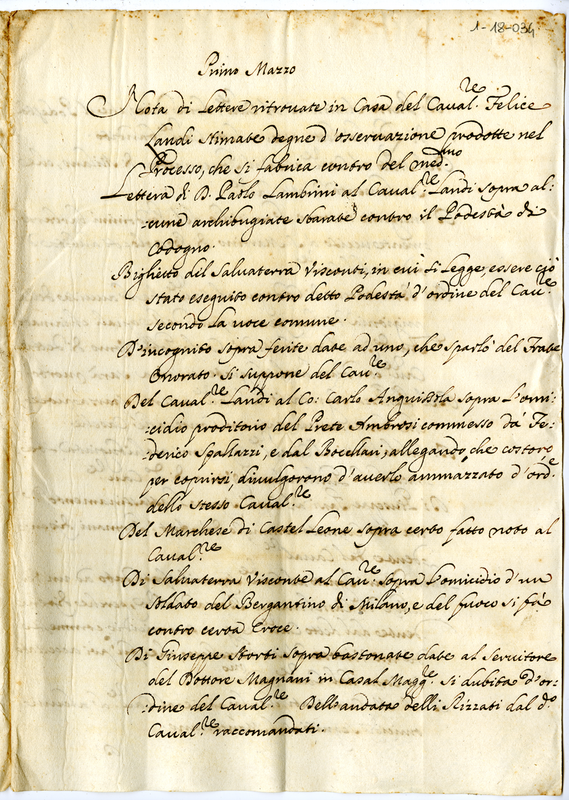 1-18-034
Primo Marzo
Nota di Lettere ritrovate in Casa del Caval.re Felice
Landi stimate degne d'osservazione prodotte nel
Processo, che si fabrica contro del med.mo
Lettera di D. Paolo Lambrini al Caval.re Landi sopra al-
-cune archibugiate sbarate contro il Podestà di
Codogno.
Biglietto del Salvaterra Visconti, in cui si legge, essere ciò
stato eseguito contro detto Podestà d'ordine del Cau.re
secondo la voce comune.
D'incognito sopra ferite date ad uno, che sparlò del Frate
Onorato. Si suppone del Cau.re
Del Caval.re Landi al Co: Carlo Anguissola sopra l'omi-
-cidio proditorio del Prete Ambrosi commesso da Fe-
-derico Spallazzi, e dal Bocellari, allegando, che costoro
per coprirsi, divulgorono d'averlo ammazzato d'ord.e
dello stesso Caval.re
Del Marchese di Castel Leone sopra certo fatto noto al
Caval.re
Di Salvaterra Visconte al Cau.re sopra l'omicidio d'un
Soldato del Bergantino di Milano, e del fuoco si fà
contro certa Croce.
Di Giuseppe Storti sopra bastonate date al Servitore
del Dottore Magnani in Casal Magg.re si dubita d'or-
-dine del Caval.re Dell'andata delli Rizzati dal d.o
Caval.re raccomandati.